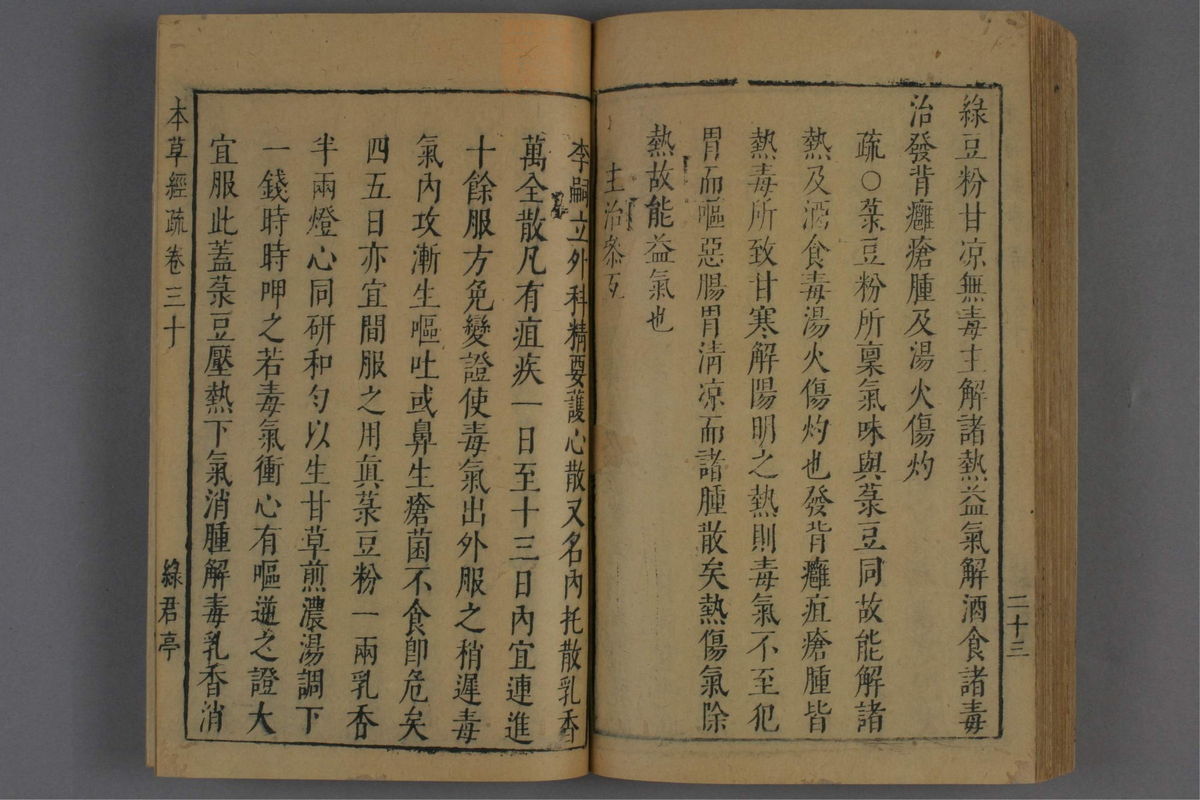 二十三
綠豆粉甘凉無毒主解諸熱益氣解酒食諸毒
治發背癰瘡腫及湯火傷灼
疏○菉豆粉所稟氣味與菉豆同故能解諸
熱及酒食毒湯火傷灼也發背癰疽瘡腫皆
熱毒所致甘寒解陽明之熱則毒氣不至犯
胃而嘔惡腸胃清凉而諸腫散矣熱傷氣除
熱故能益氣也
主治參互
李嗣立外科精要護心散又名內托散乳香
萬全散凡有疽疾一日至十三日內宜連進
十餘服方免變證使毒氣出外服之稍遲毒
氣內攻漸生嘔吐或鼻生瘡菌不食卽危矣
四五日亦宜間服之用眞菉豆粉一兩乳香
半兩燈心同研和勻以生甘草煎濃湯調下
一錢時時呷之若毒氣衝心有嘔逆之證大
宜服此蓋菉豆壓熱下氣消腫解毒乳香消
本草經疏卷三十
綠君亭